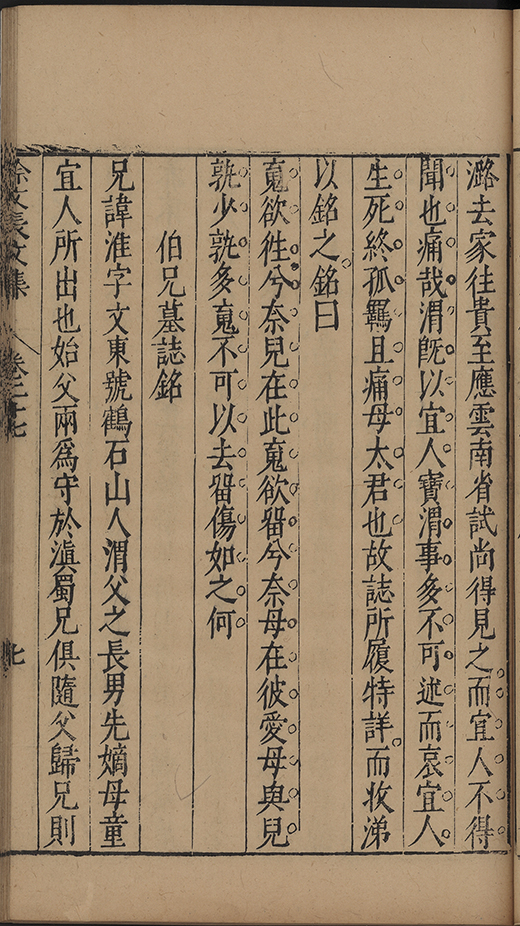 潞去家往貴至應雲南省試尚得見之而宜人不得
聞也痛哉渭旣以宜人寶渭事多不可述而哀宜人
生死終孤羈且痛母太君也故誌所履特詳而收涕
以銘之銘曰
䰟欲徃兮奈兒在此䰟欲畱兮奈母在彼愛母與兒
孰少孰多䰟不可以去畱傷如之何
伯兄墓誌銘
兄諱淮字文東號鶴石山人渭父之長男先嫡母童
宜人所出也始父兩爲守於滇蜀兄俱隨父歸兄則
徐文長文集
卷二十七
七